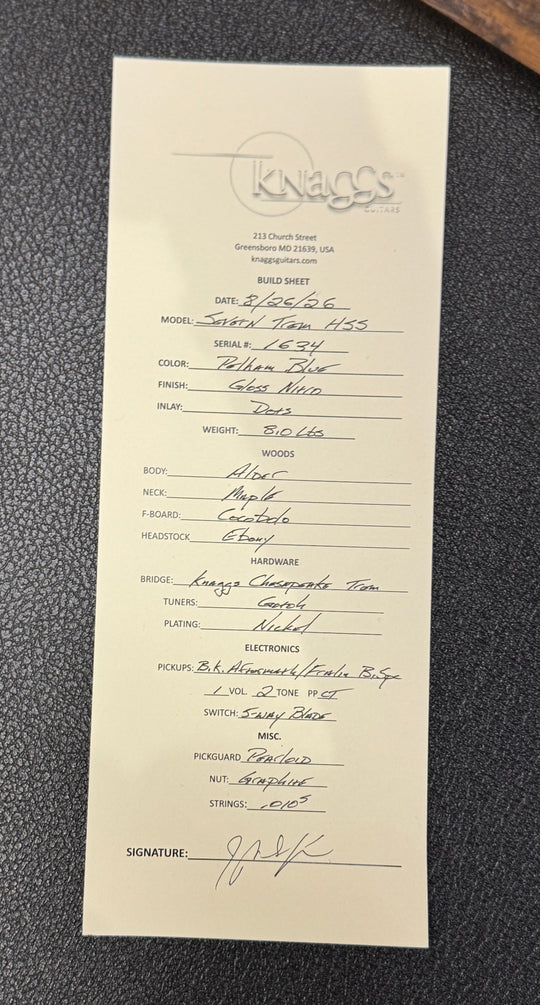 Knaggs™
GUITARS
213 Church Street
Greensboro MD 21639, USA
knaggsguitars.com
BUILD SHEET
DATE: 8/26/26
MODEL: Severn Trem HSS
SERIAL #: 1634
COLOR: Pelham Blue
FINISH: Gloss Nitro
INLAY: Dots
WEIGHT: 8.0 Lbs
WOODS
BODY: Alder
NECK: Maple
F-BOARD: Cocobolo
HEADSTOCK Ebony
HARDWARE
BRIDGE: Knaggs Chesapeake Trem
TUNERS:
PLATING: Nickel
ELECTRONICS
PICKUPS: B.K. Aftermath/Fralin
1 VOL 2 TONE PP CT
SWITCH: 5-way Blade
MISC.
PICKGUARD Pearloid
NUT: Graphite
STRINGS: .010s
SIGNATURE: